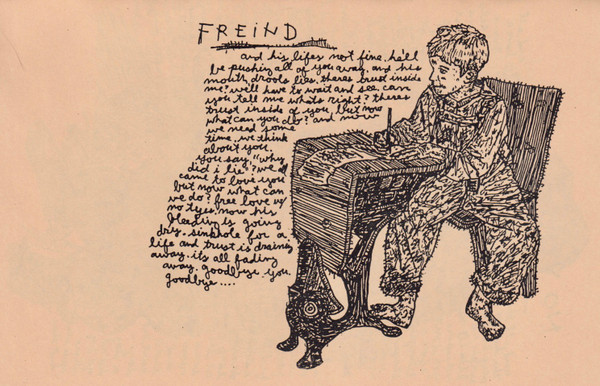 FREIND
and his lifes not fine. he'll
be pushing all of you away. and his
mouth drools lies. theres trust inside
me? we'll have to wait and see. can
you tell me whats right? theres
trust inside of you. but now
what can you do? and now
we need some
time. we think
about you.
you say, "why
did i lie"? we all
came to love you
but now what can
we do? free love w/
no eyes. now his
is going
dry. sinkhole for a
life and trust is draining
away. it's all fading
away. goodbye. you.
goodbye....